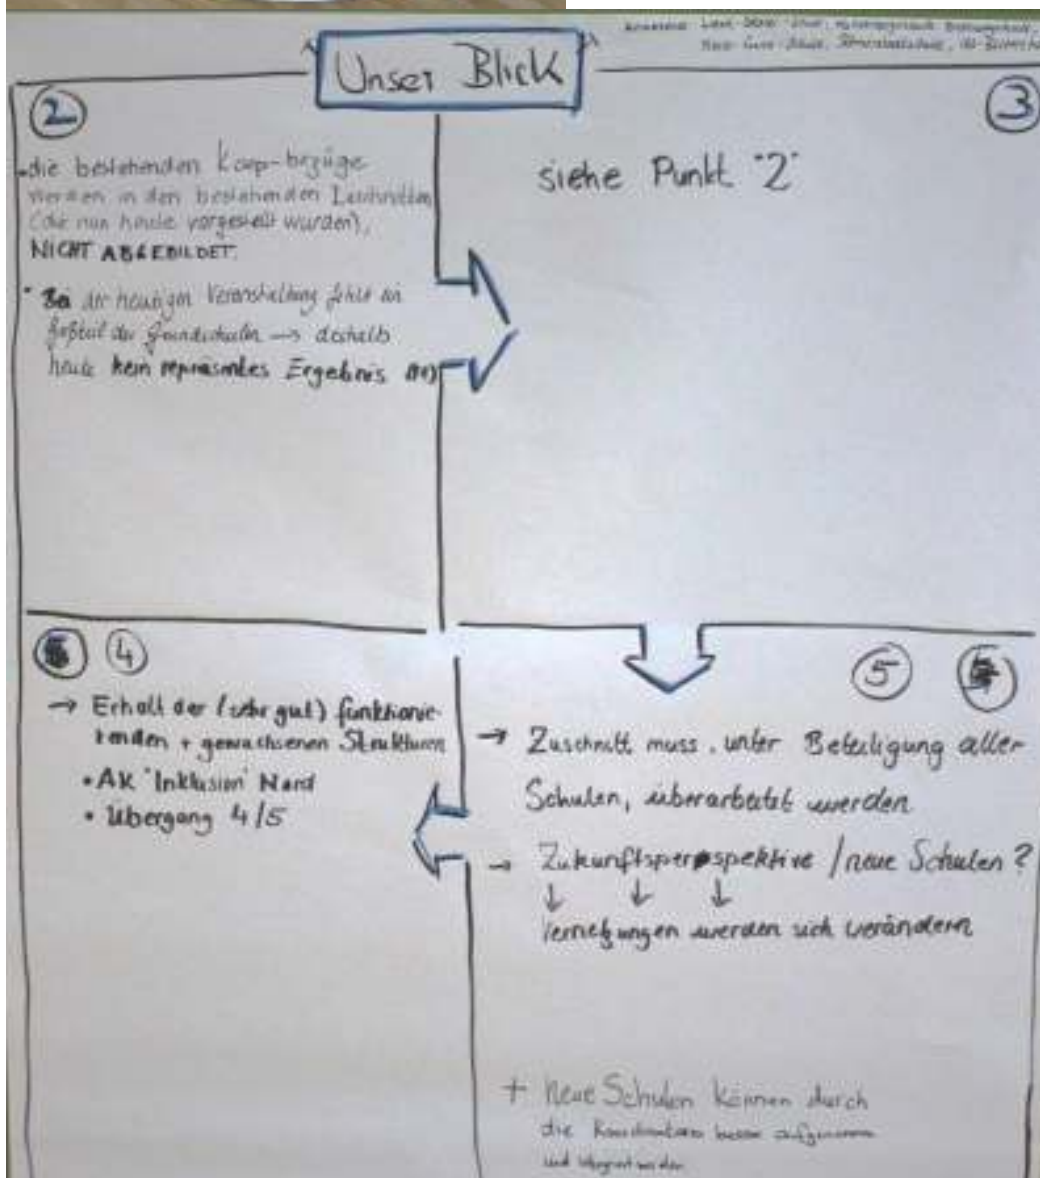 Unser Blick
2
3
die bestehenden Koop-bezüge
werden in den bestehenden
(die nun heute vorgestellt wurden),
NICHT ABGEBILDET.
Bei der heutigen Veranstaltung fehlt ein
Großteil der Grundschulen → deshalb
heute kein Ergebnis
siehe Punkt "2"
4
→ Erhalt der (sehr gut) funktionie-
renden + gewachsenen Strukturen
• AK "Inklusion" Nord
• Übergang 4/5
5
→ Zuschnitt muss, unter Beteiligung aller
Schulen, überarbeitet werden
→ Zukunftsperspektive / neue Schulen?
↓ ↓ ↓
Vernetzungen werden sich verändern
+ Neue Schulen können durch
die besser aufgenommen
und integriert werden